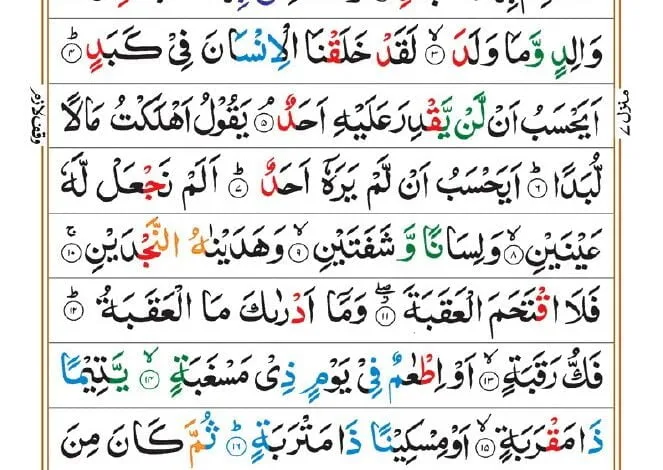 وَالِدٍ وَّمَا وَلَدَ ۙ‏ ﴿۳﴾ لَقَدْ خَلَقْنَا الْاِنْسَانَ فِیْ كَبَدٍ ؕ‏ ﴿۴﴾
اَیَحْسَبُ اَنْ لَّنْ یَّقْدِرَ عَلَیْهِ اَحَدٌ ۘ‏ ﴿۵﴾ یَقُوْلُ اَهْلَكْتُ مَالًا
لُّبَدًا ؕ‏ ﴿۶﴾ اَیَحْسَبُ اَنْ لَّمْ یَرَهٗۤ اَحَدٌ ؕ‏ ﴿۷﴾ اَلَمْ نَجْعَلْ لَّهٗ
عَیْنَیْنِ ۙ‏ ﴿۸﴾ وَلِسَانًا وَّ شَفَتَیْنِ ۙ‏ ﴿۹﴾ وَهَدَیْنٰهُ النَّجْدَیْنِ ۚ‏ ﴿۱۰﴾
فَلَا اقْتَحَمَ الْعَقَبَةَ ۖ‏ ﴿۱۱﴾ وَمَاۤ اَدْرٰىكَ مَا الْعَقَبَةُ ؕ‏ ﴿۱۲﴾
فَكُّ رَقَبَةٍ ۙ‏ ﴿۱۳﴾ اَوْ اِطْعٰمٌ فِیْ یَوْمٍ ذِیْ مَسْغَبَةٍ ۙ‏ ﴿۱۴﴾ یَّتِیْمًا
ذَا مَقْرَبَةٍ ۙ‏ ﴿۱۵﴾ اَوْ مِسْكِیْنًا ذَا مَتْرَبَةٍ ؕ‏ ﴿۱۶﴾ ثُمَّ كَانَ مِنَ
منزل ۷
وقف لازم